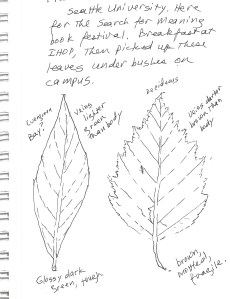 Seattle University. Here
for the Search for Meaning
book festival. Breakfast at
IHOP, then picked up these
leaves under bushes on
campus.
Evergreen
Bay?
Veins
lighter
green
than body
Deciduous
Veins darker
brown than
body
Glossy dark
green, tough.
brown,
mottled,
fragile.